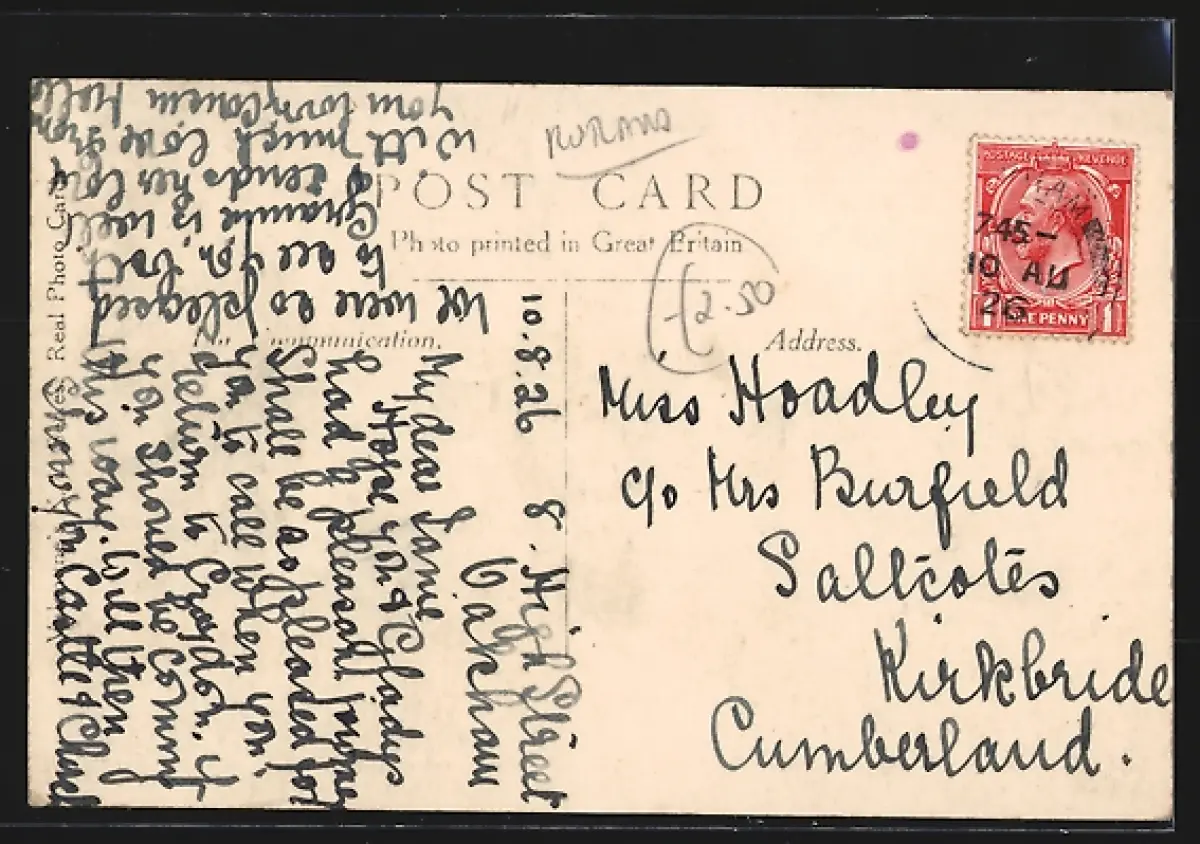 RUTLAND
POST CARD
Photo printed in Great Britain
£2.50
Address.
Communication.
Real Photo Card
POSTAGE REVENUE
ONE PENNY
7.45-
10 AU
26
Miss Hoadley
c/o Mrs Burfield
Saltcotes
Kirkbride
Cumberland.
10.8.26 8. High Street
Oakham
My dear
Hope you & Gladys
had a pleasant journey
Shall be as pleased for
you to call when you
return to Croydon, if
you should be coming
this way. Will then
show you Castle & Church
We were so pleased
to see you, last
Grannie is well
& sends her love
With much love from
your loving Cousin Nell